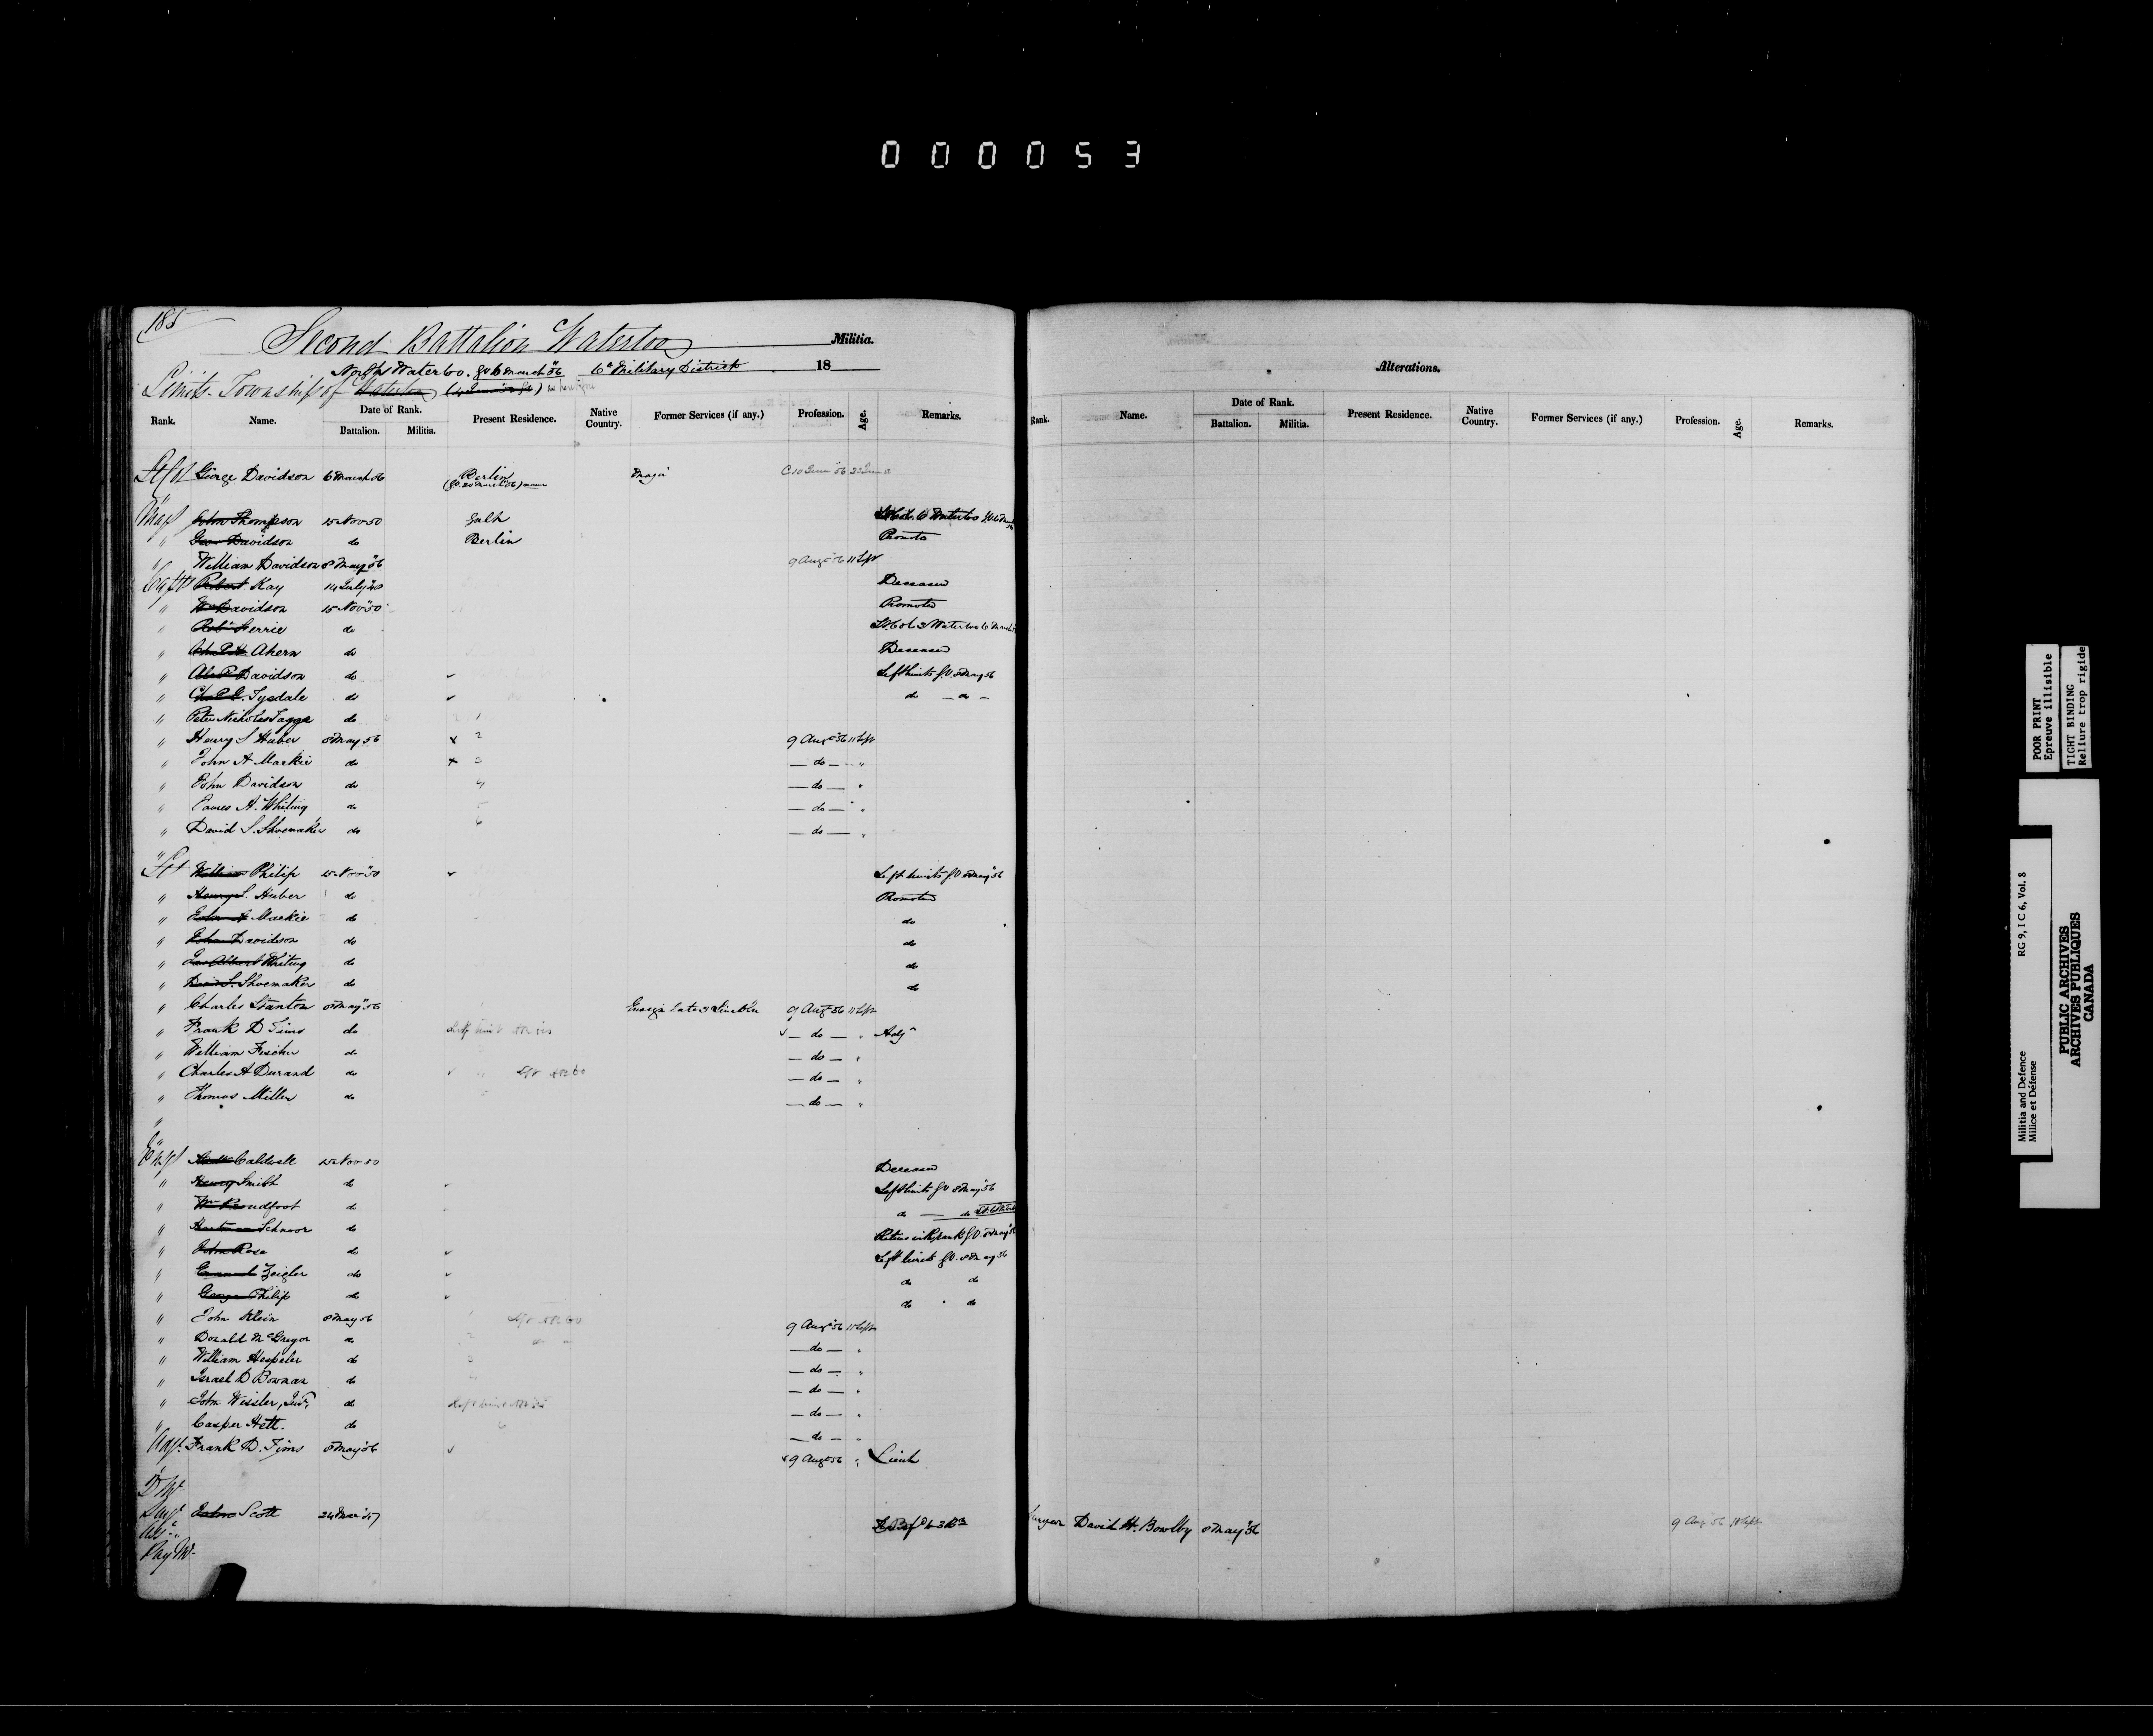 000053
185
Second Battalion Waterloo Militia.
North Waterloo. G.O. 6 March 56 6th Military District 18
Limits - Township of Waterloo
Rank. Name. Date of Rank. Battalion. Militia. Present Residence. Native Country. Former Services (if any.) Profession. Age. Remarks.
Lt Col George Davidson 6 March 56 Berlin Major
Majr John Thompson 15 Nov 50 Galt
" Geo Davidson do Berlin Promoted
" William Davidson 8 May 56 9 Aug 56 11 Sept
Captn Robert Kay 14 July Deceased
" Wm Davidson 15 Nov 50 Promoted
" Robt Ferrie do Lt Col 3 Waterloo 6 March
" Ahern do Deceased
" Davidson do Left limits G.O. 8 May 56
" Tysdale do do - do -
" Peter Nicholas Tagge do 1
" Henry S Huber 8 May 56 x 2 9 Aug 56 11 Sept
" John A Mackie do x 3 - do - "
" John Davidson do 4 - do - "
" James A. Whiting do 5 - do - "
" David S. Shoemaker do 6 - do - "
Lt William Philip 15 Nov 50 Left limits G.O. 8 May 56
" Henry S. Huber do Promoted
" John A Mackie do do
" John Davidson do do
" Jas Albert Whiting do do
" David S. Shoemaker do do
" Charles Stanton 8 May 56 Ensign late 3 Lincoln 9 Aug 56 11 Sept
" Frank D Tims do - do - " Adjt
" William Fischer do - do - "
" Charles A Durand do - do - "
" Thomas Miller do - do - "
"
Ensn Caldwell 15 Nov 50 Deceased
" Henry Smith do Left limits G.O. 8 May 56
" Wm Proudfoot do do - do
" Hartman Schnoor do Retires with rank G.O. 8 May 56
" John Rose do Left limits G.O. 8 May 56
" Emanuel Zeigler do do do
" George Philip do do do
" John Klein 8 May 56 9 Aug 56 11 Sept
" Donald McGregor do - do - "
" William Hespeler do - do - "
" Israel D Bowman do - do - "
" John Wissler, Junr, do - do - "
" Casper Hett. do - do - "
Adjt. Frank D. Tims 8 May 56 9 Aug 56 " Lieut
Surgn John Scott
Pay Mr
Alterations.
Rank. Name. Date of Rank. Battalion. Militia. Present Residence. Native Country. Former Services (if any.) Profession. Age. Remarks.
Surgeon David H. Bowlby 8 May 56 9 Aug 56 11 Sept
POOR PRINT
Epreuve illisible
TIGHT BINDING
Reliure trop rigide
Militia and Defence RG 9, I C 6, Vol. 8
Milice et Défense
PUBLIC ARCHIVES
ARCHIVES PUBLIQUES
CANADA